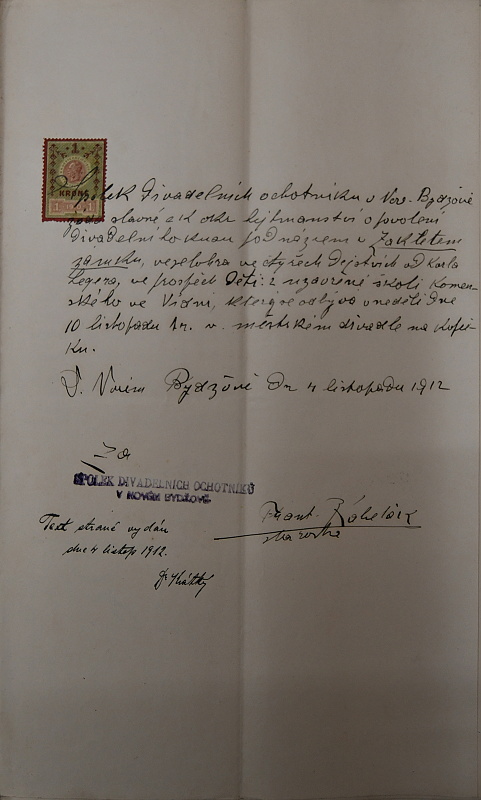 1
KRONE
Spolek divadelních ochotníků v Nov. Bydžově
žádá slavné c k okr hejtmanství o povolení
divadelního kusu pod názvem v Zakletém
zámku, veselohra ve čtyřech dějstvích od Karla
Legera, ve prospěch dětí z uzavřené školi Komen-
ského ve Vídni, který se odbýva v neděli dne
10 listopadu tr. v městském divadle na kopeč-
ku.
V Novém Bydžově Dne 4 listopadu 1912
Za
SPOLEK DIVADELNÍCH OCHOTNÍKŮ
V NOVÉM BYDŽOVĚ
Text straně vydán
dne 4 listop. 1912.
Frant.
starosta